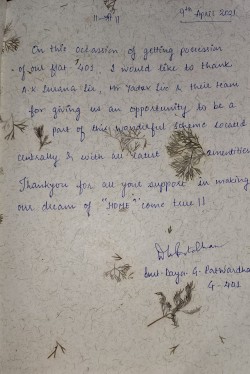 ॥ श्री ॥
9th April 2021
On this occassion of getting possession
of our flat 401, I would like to thank
S.K Surana Sir, Mr Yadav Sir & their team
for giving us an opportunity to be a
part of this wonderful scheme located
centrally & with all latest amentities
Thankyou for all your support in making
our dream of "HOME" come true !!
Smt. Daya G. Patwardhan
G - 401